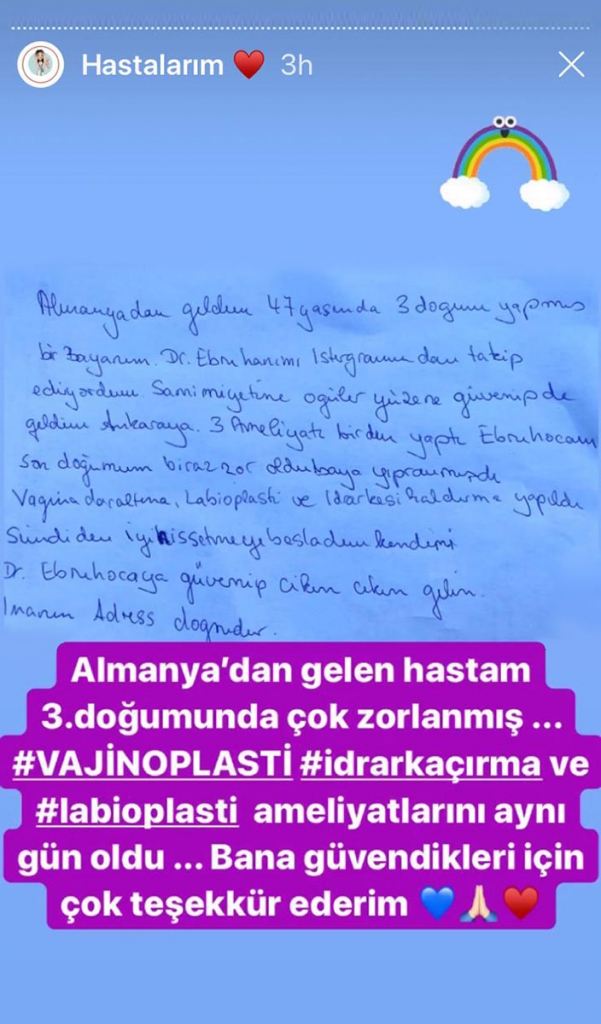 Hastalarım ❤️ 3h
Almanyadan geldim 47 yaşında 3 doğum yapmış
bir Bayanım. Dr. Ebru hanımı Istegramdan takip
ediyordum Samimiyetine ogüler yüzene güvenip de
geldim Ankaraya. 3 Ameliyatı birden yaptı Ebruhocam
Son doğumum biraz zor oldu baya yıpranmışdı
Vagina daraltma, Labioplasti ve Idarkesi kaldırma yapıldı
Şimdiden iyi hissetmeye başladım kendimi
Dr. Ebruhocaya güvenip cikin cikin gelin.
Inanın Adress doğrudur.
Almanya’dan gelen hastam
3.doğumunda çok zorlanmış ...
#VAJİNOPLASTİ #idrarkaçırma ve
#labioplasti ameliyatlarını aynı
gün oldu ... Bana güvendikleri için
çok teşekkür ederim 💙🙏🏻♥️